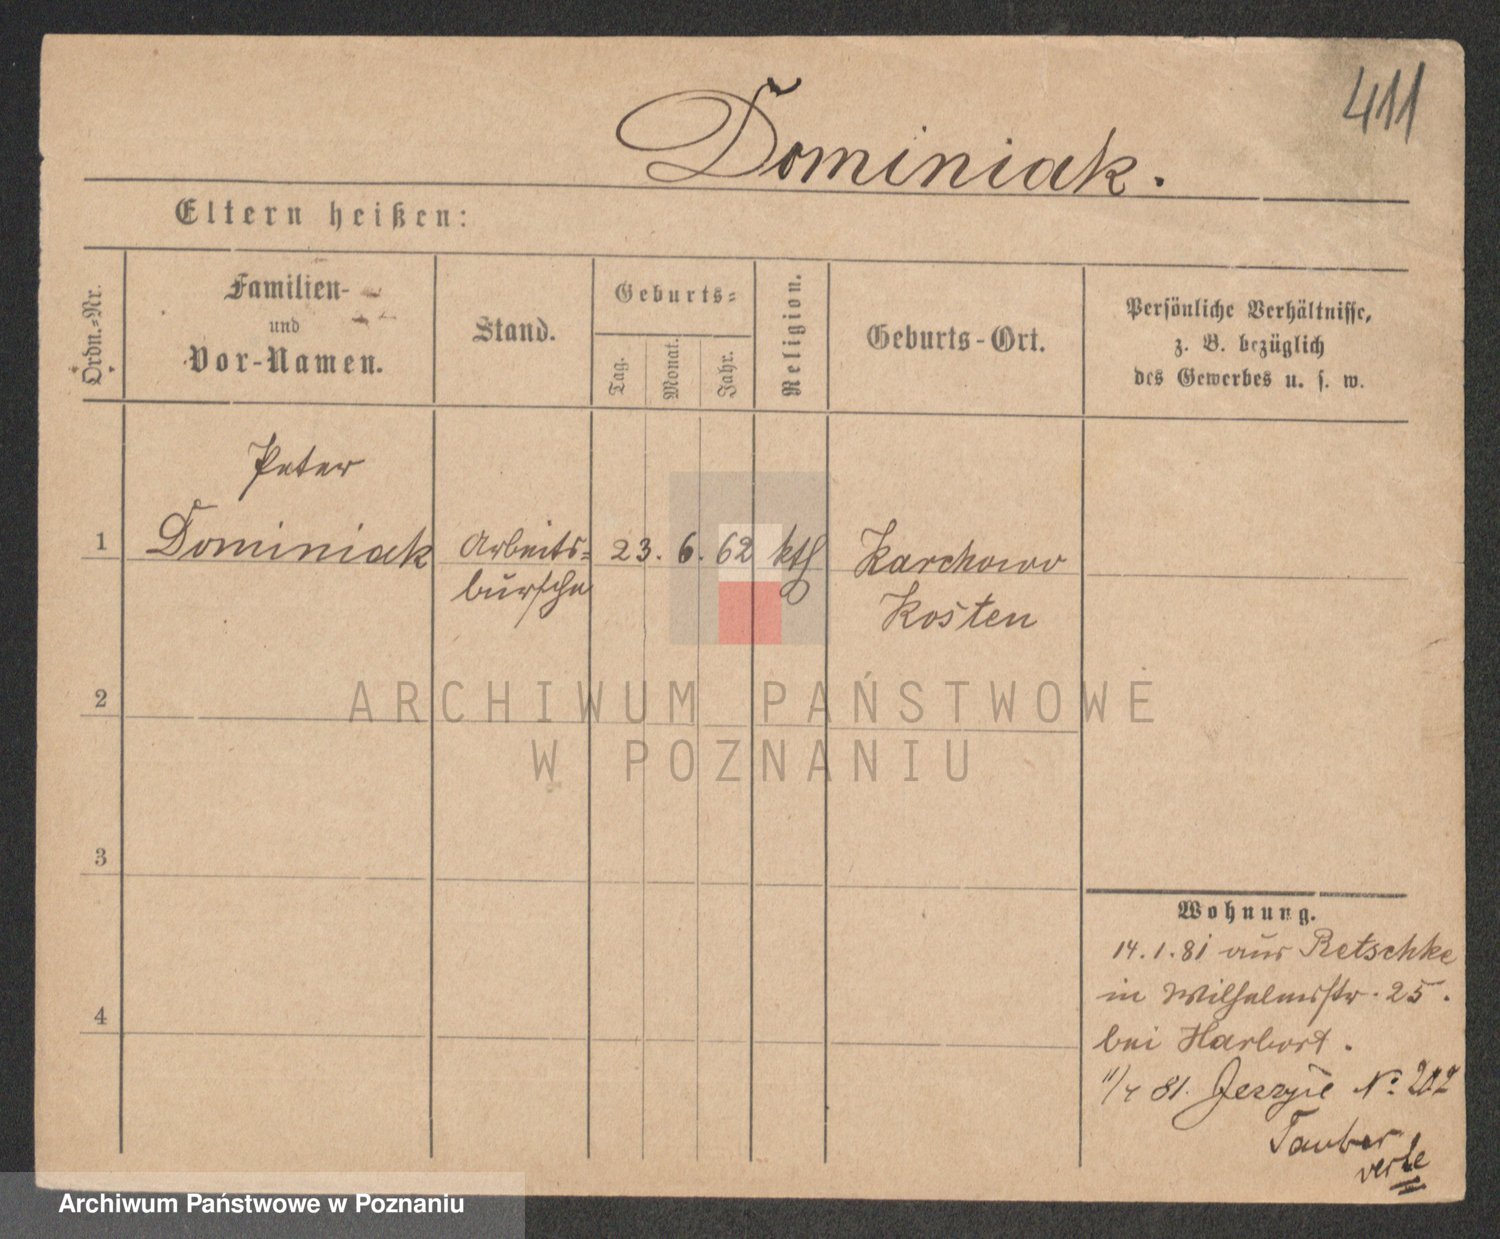 411
Dominiak.
Eltern heißen:
Ordn.-Nr.
Familien-
und
Vor-Namen.
Stand.
Geburts-
Tag.
Monat.
Jahr.
Religion.
Geburts-Ort.
Persönliche Verhältnisse,
z. B. bezüglich
des Gewerbes u. s. w.
Peter
1 Dominiak Arbeits- 23. 6. 62 kth Karchowo
bursche Kosten
2
ARCHIWUM PAŃSTWOWE
W POZNANIU
3
4
Wohnung.
14.1.81 aus Retschke
in Wilhelmsstr. 25.
bei Harbort.
11/4 81. Jerzyce No. 202
Tauber
Archiwum Państwowe w Poznaniu